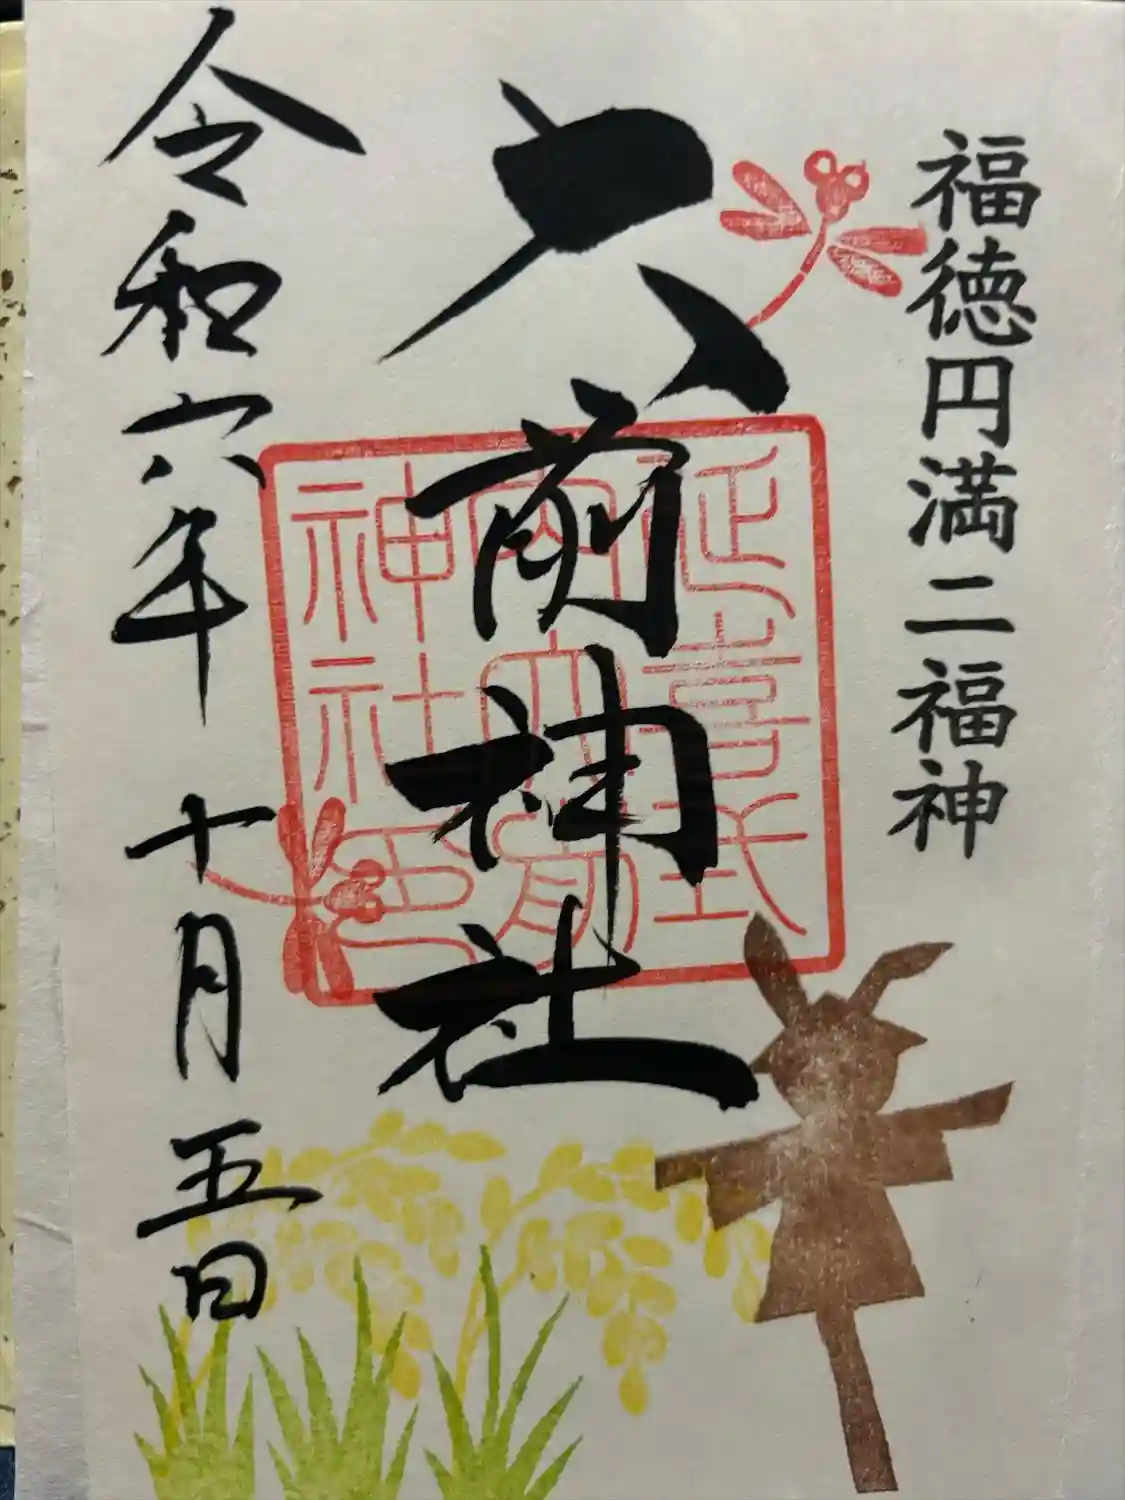 福徳円満二福神
大前神社
令和六年十月五日
延喜式
内大前
神社印